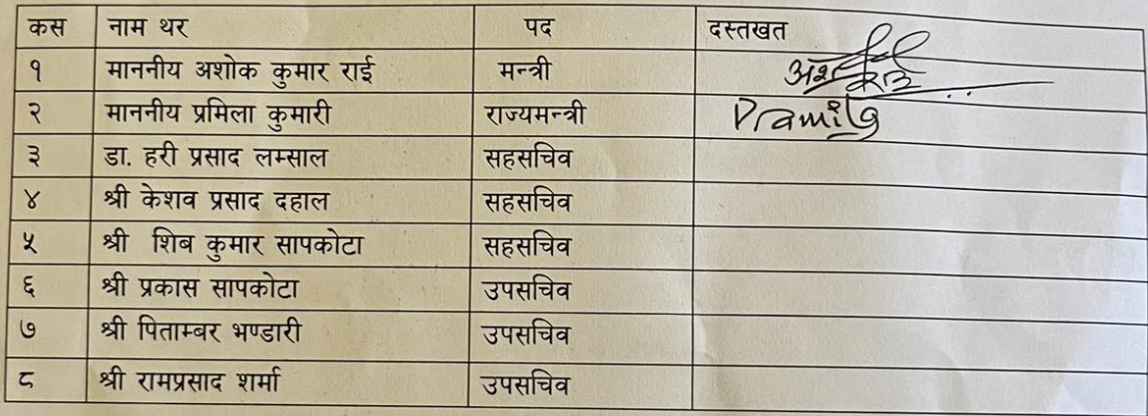 कस नाम थर पद दस्तखत
१ माननीय अशोक कुमार राई मन्त्री
२ माननीय प्रमिला कुमारी राज्यमन्त्री Pramila
३ डा. हरी प्रसाद लम्साल सहसचिव
४ श्री केशव प्रसाद दहाल सहसचिव
५ श्री शिब कुमार सापकोटा सहसचिव
६ श्री प्रकास सापकोटा उपसचिव
७ श्री पिताम्बर भण्डारी उपसचिव
८ श्री रामप्रसाद शर्मा उपसचिव